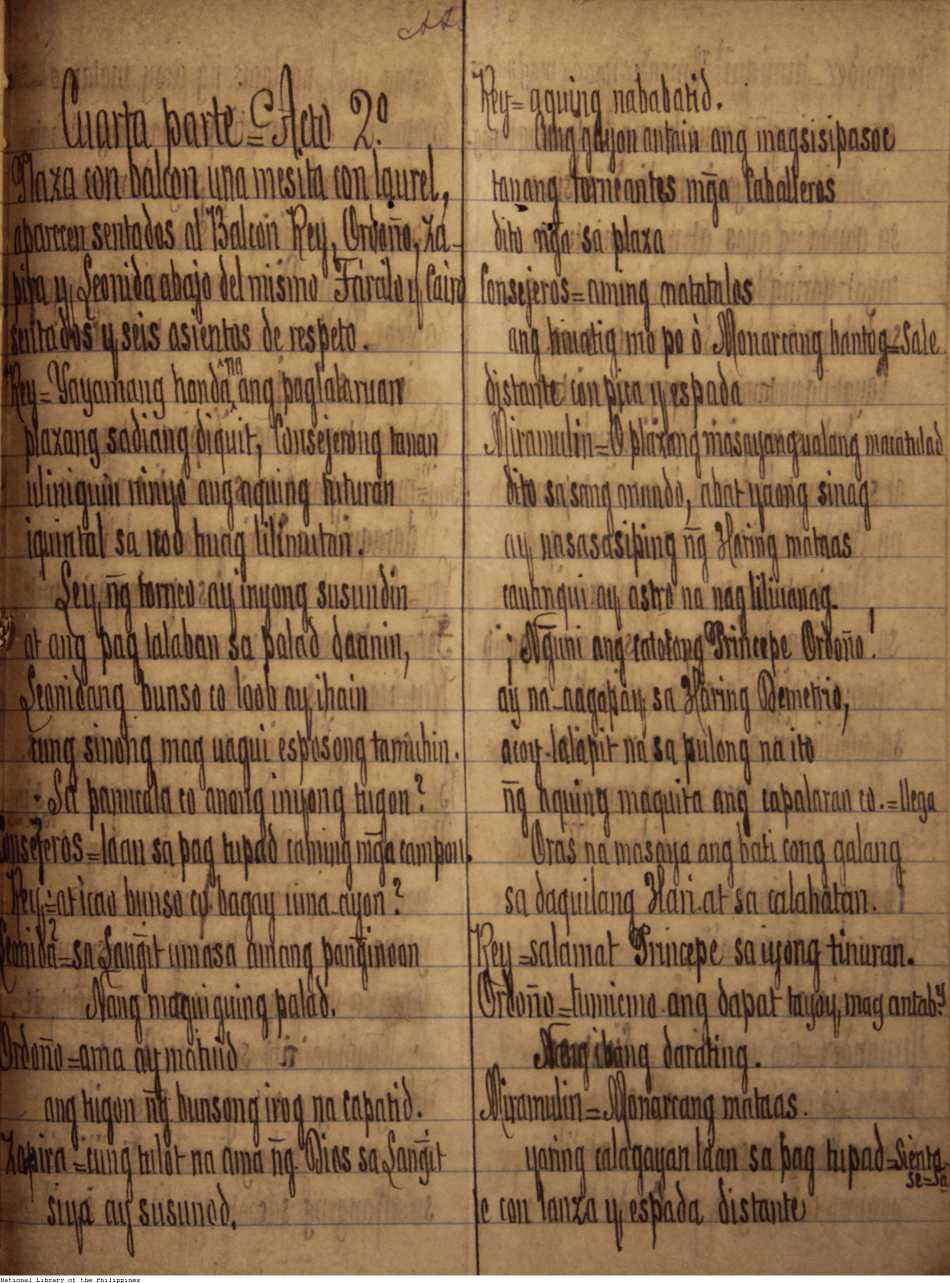 Cuarta parte = C Acto 2º
Plaza con balcon una mesita con laurel,
aparecen sentados al Balcon Rey, Ordoño, Za-
pira y Leonida abajo del mismo Farailo y Cairo
sentados y seis asientos de respeto.
Rey = Yayamang handa na ang paglalaruan
plazang sadiang diquit, Consejerong tanan
uliniguin ninyo ang aquing tuturan
iquintal sa noo huag lilimutan.
Ley ñg torneo ay inyong susundin
at ang pag lalaban sa palad daanin,
Leonidang bunso co loob ay ihain
cung sinong mag uagui esposong tamuhin.
Sa panucala co anong inyong tugon?
Consejeros = laan sa pag tupad caming mg̃a campon.
Rey = at icao bunso co bagay cuna ayon?
Leonida = sa Lang̃it umasa amang pang̃inoon
Nang maguiguing palad.
Ordoño = ama ay matuid
ang tugon ñg bunsong irog na capatid.
Zapira = cung tulot na ama ñg Dios sa Lang̃it
siya ay susunod.
Rey = aquing nababatid.
Cung gayon antain ang magsisipasoc
tanang torneantes mg̃a Caballeros
dito ñga sa plaza
Consejeros = aming matatalos
ang hinatig mo po ò Monarcang bantóg = Sale
distante con pica y espada
Miramulin = O plazang masayang ualang macatulad
dito sa sang mundo, abat yaong sinag
ay nasasasiping ñg Haring mataas
cauangqui ay astro na nagliliuanag.
¡ Ng̃uni ang catotong Principe Ordoño!
ay na-aagapay sa Haring Demetrio,
acoy lalapit na sa pulong na ito
ñg aquing maquita ang capalaran co. = llega
Oras na masaya ang bati cong galang
sa daquilang Hari at sa calahatan.
Rey = salamat Principe sa iyong tinuran.
Ordoño = lumicmo ang dapat tayoy, mag antabay
Nang ibang darating.
Miramulin = Monarcang mataas.
yaring calagayan laan sa pag tupad = Sienta-
se = Sa
le con lanza y espada distante
National Library of the Philippines